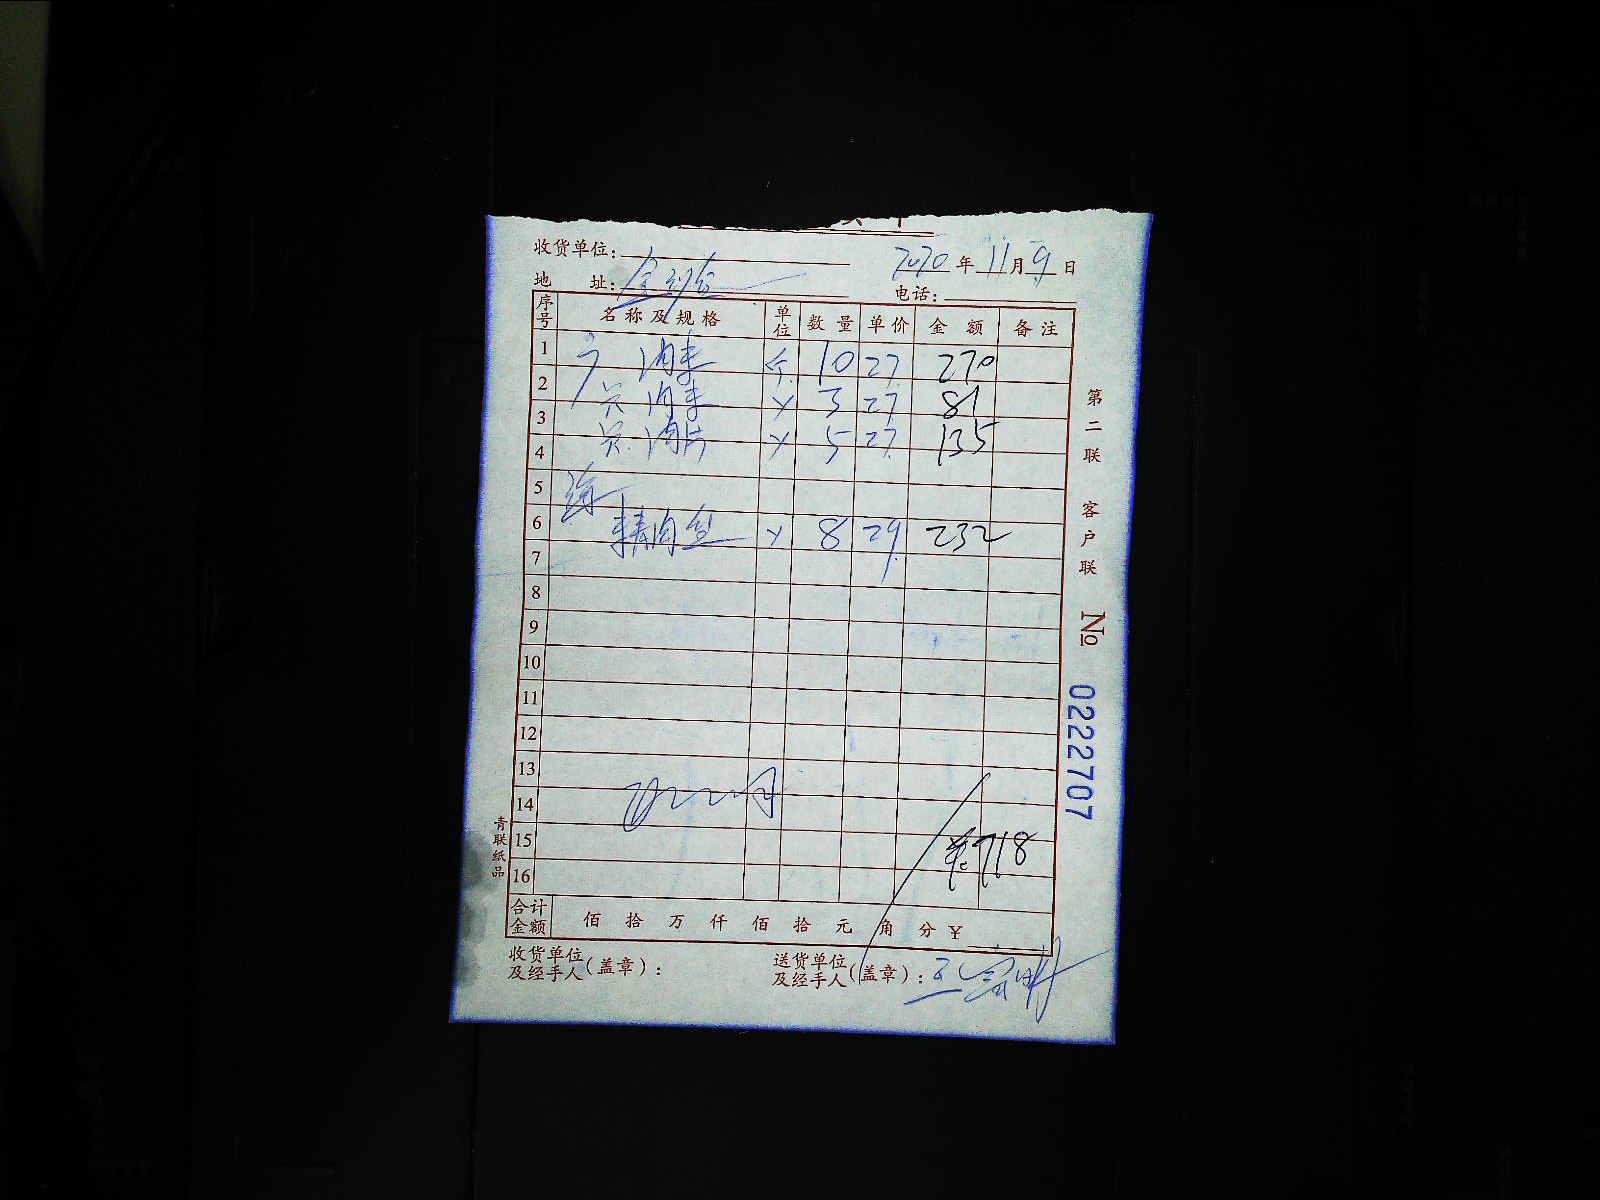 收货单位：
2020年11月9日
地址：
电话：
序号 名称及规格 单位 数量 单价 金额 备注
1 肉末 斤 10 27 270
2 肉末 〃 3 27 81
3 肉片 〃 5 27 135
4
5
6 精肉丝 〃 8 29 232
7
8
9
10
11
12
13
14
15 ¥:718
16
合计金额 佰 拾 万 仟 佰 拾 元 角 分 ¥
收货单位及经手人（盖章）：
送货单位及经手人（盖章）：
第二联 客户联
No 0222707
青联纸品